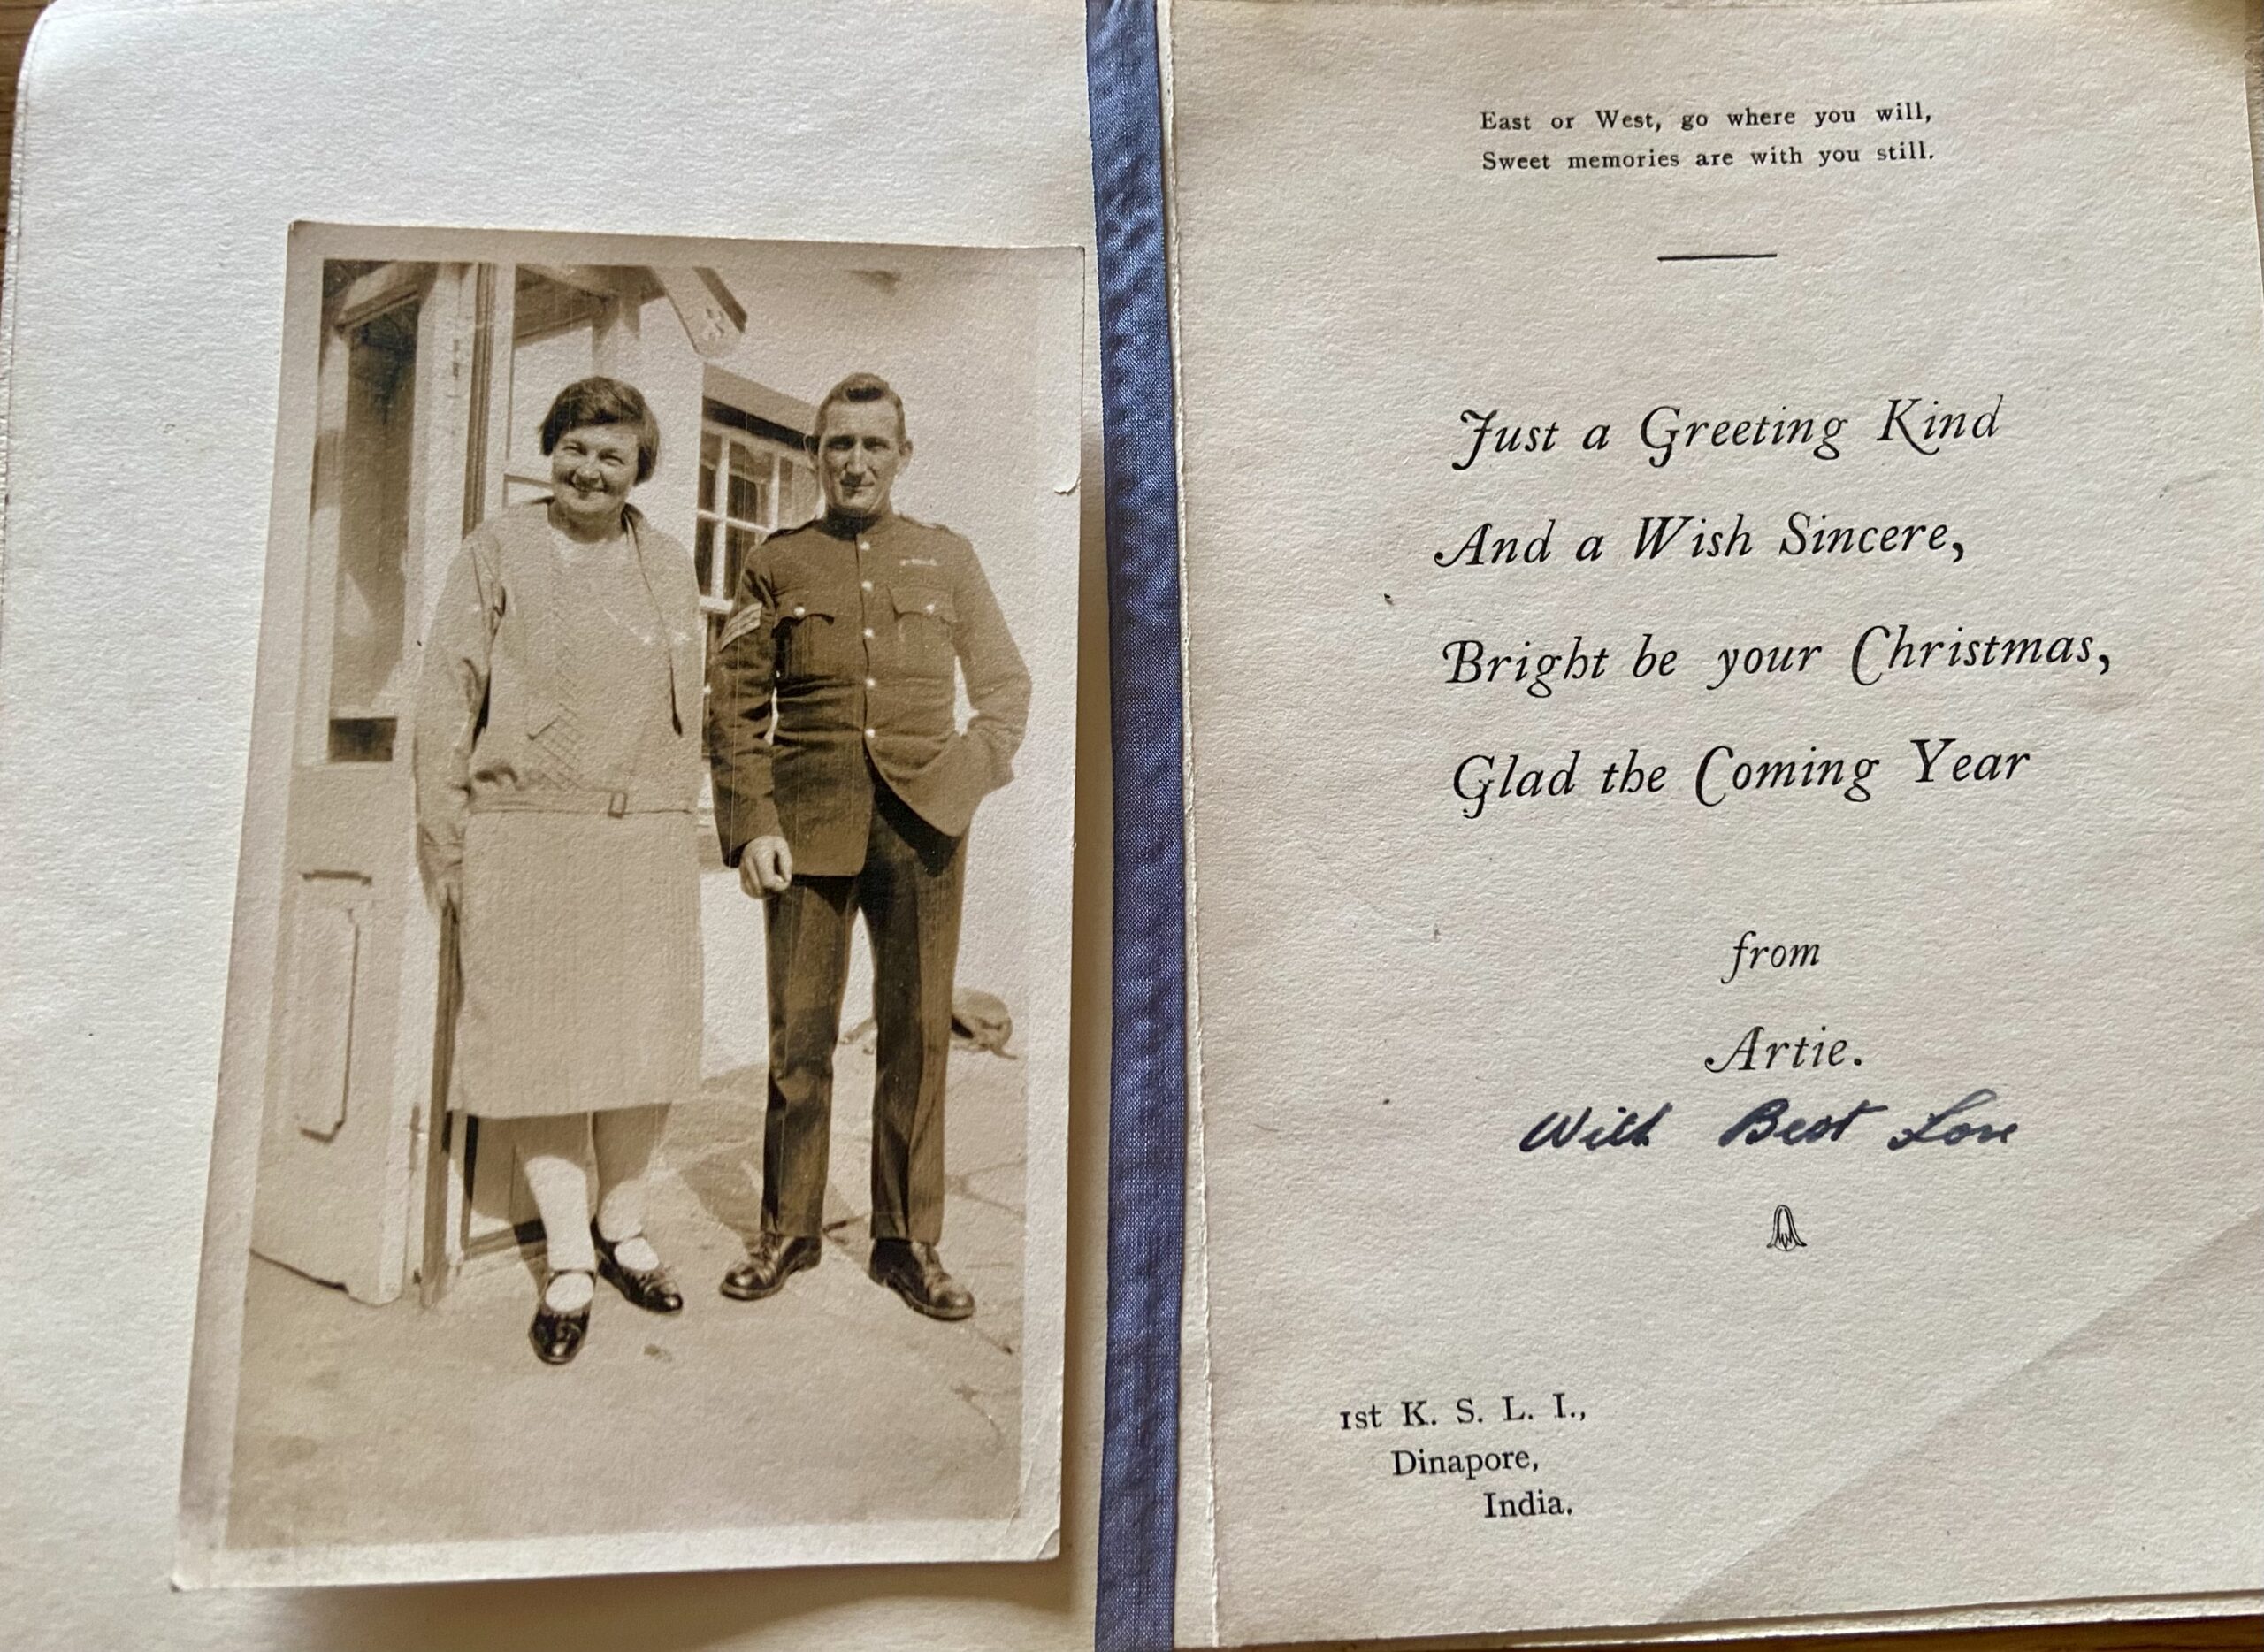 East or West, go where you will,
Sweet memories are with you still.
Just a Greeting Kind
And a Wish Sincere,
Bright be your Christmas,
Glad the Coming Year
from
Artie.
With Best Love
1st K. S. L. I.,
Dinapore,
India.